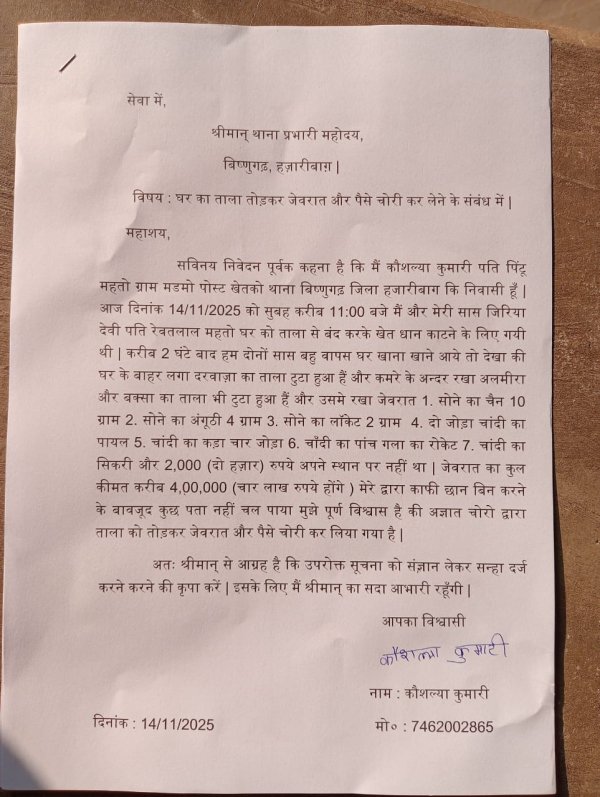 सेवा में,
श्रीमान् थाना प्रभारी महोदय,
बिष्णुगढ़, हज़ारीबाग़ |
विषय : घर का ताला तोड़कर जेवरात और पैसे चोरी कर लेने के संबंध में |
महाशय,
सविनय निवेदन पूर्वक कहना है कि मैं कौशल्या कुमारी पति पिंटू
महतो ग्राम मडमो पोस्ट खेतको थाना बिष्णुगढ़ जिला हजारीबाग कि निवासी हूँ |
आज दिनांक 14/11/2025 को सुबह करीब 11:00 बजे मैं और मेरी सास जिरिया
देवी पति रेवतलाल महतो घर को ताला से बंद करके खेत धान काटने के लिए गयी
थी | करीब 2 घंटे बाद हम दोनों सास बहु वापस घर खाना खाने आये तो देखा की
घर के बाहर लगा दरवाज़ा का ताला टुटा हुआ हैं और कमरे के अन्दर रखा अलमीरा
और बक्सा का ताला भी टुटा हुआ हैं और उसमे रखा जेवरात 1. सोने का चैन 10
ग्राम 2. सोने का अंगूठी 4 ग्राम 3. सोने का लॉकेट 2 ग्राम 4. दो जोड़ा चांदी का
पायल 5. चांदी का कड़ा चार जोड़ा 6. चाँदी का पांच गला का रोकेट 7. चांदी का
सिकरी और 2,000 (दो हज़ार) रुपये अपने स्थान पर नहीं था | जेवरात का कुल
कीमत करीब 4,00,000 (चार लाख रुपये होंगे ) मेरे द्वारा काफी छान बिन करने
के बावजूद कुछ पता नहीं चल पाया मुझे पूर्ण विश्वास है की अज्ञात चोरो द्वारा
ताला को तोड़कर जेवरात और पैसे चोरी कर लिया गया है |
अतः श्रीमान् से आग्रह है कि उपरोक्त सूचना को संज्ञान लेकर सन्हा दर्ज
करने करने की कृपा करें | इसके लिए मैं श्रीमान् का सदा आभारी रहूँगी |
आपका विश्वासी
कौशल्या कुमारी
नाम : कौशल्या कुमारी
दिनांक : 14/11/2025 मो० : 7462002865